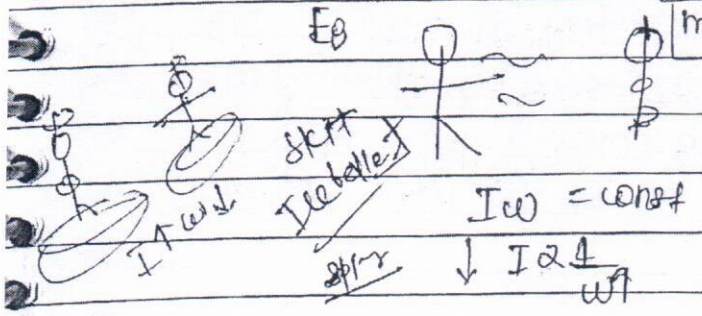 Eθ
m
Skit
Ice ballet
I↑ ω↓
Iω = const
spins
↓ I ∝ 1/ω↑